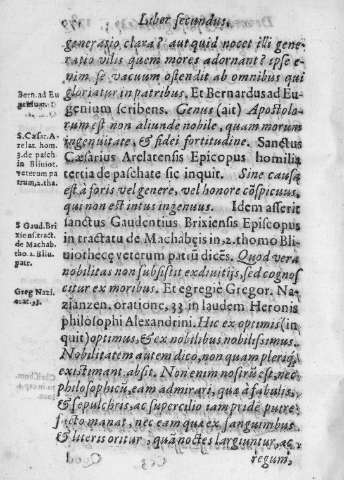 Liber secundus.
generatio clara? aut quid nocet illi gene
ratio vilis quem mores adornant? ipse e-
nim se vacuum ostendit ab omnibus qui
gloriatur in patribus. Et Bernardus ad Eu
genium scribens. Genus (ait) Apostolo-
rum est non aliunde nobile, quam morum
ingenuitate, & fidei fortitudine. Sanctus
Cæsarius Arelatensis Epicopus homilia
tertia de paschate sic inquit. Sine causa
est à foris vel genere, vel honore cōspicuus,
qui non est intus ingenuus. Idem asserit
sanctus Gaudentius Brixiensis Episcopus
in tractatu de Machabęis in .2. thomo Bli
uiothecę veterum patrū dicēs. Quod vera
nobilitas non subsistit ex diuitijs, sed cognos
citur ex moribus. Et egregiè Gregor. Na-
zianzen. oratione, 33 in laudem Heronis
philosophi Alexandrini. Hic ex optimis (in
quit) optimus, & ex nobilibus nobilissimus.
Nobilitatem autem dico, non quam plerique
existimant, absit. Non enim nostrū est, nec
philosophicū, eam admirari, quæ à fabulis,
& sepulchris, ac supercilio iampridē putre-
facto manat, nec eam quæ ex sanguinibus
& literis oritur, quā noctes largiuntur, ac
regum,
Bern. ad Eu
genium.
S. Cæsar. A-
relat. hom.
3. de pasch.
in Bliuiot.
veterum pa
trum, 2. tho.
S Gaud. Bri
xiēsi. tract.
de Machab.
tho. 2. Bliu.
patr.
Greg Nazi.
orat. 33.